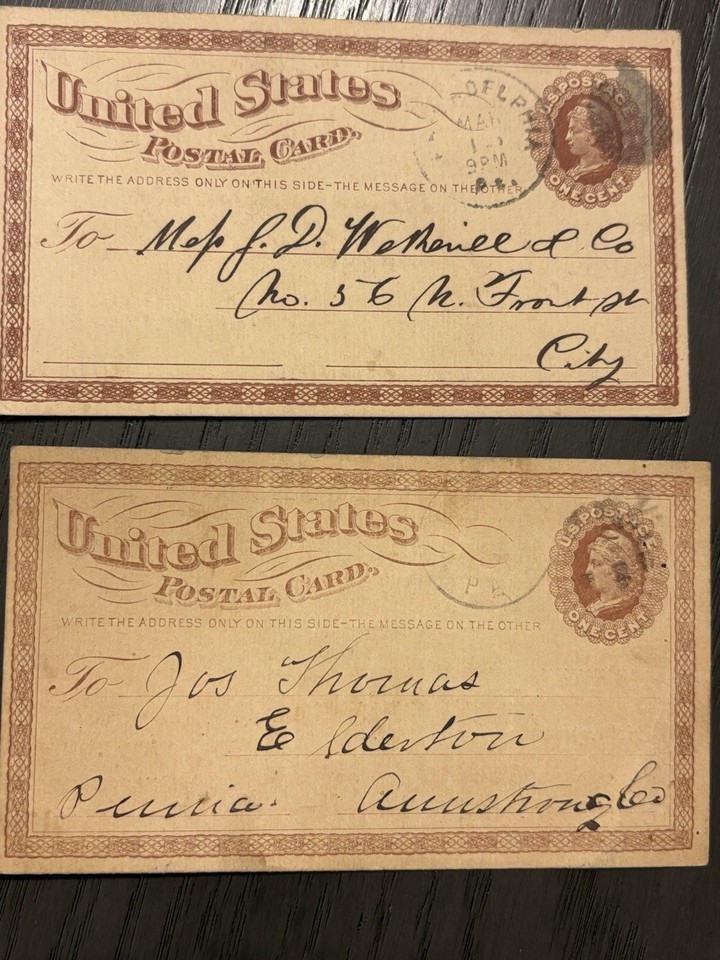 United States
POSTAL CARD.
WRITE THE ADDRESS ONLY ON THIS SIDE–THE MESSAGE ON THE OTHER
DELPHIA
MAR
9PM
PA.
U.S. POSTAGE
ONE CENT
To Mess J. D. Wetherill & Co
No. 56 N. Front st
City
United States
POSTAL CARD.
WRITE THE ADDRESS ONLY ON THIS SIDE–THE MESSAGE ON THE OTHER
U.S. POSTAGE
ONE CENT
To Jos Thomas
Elderton
Penna. Armstrong Co